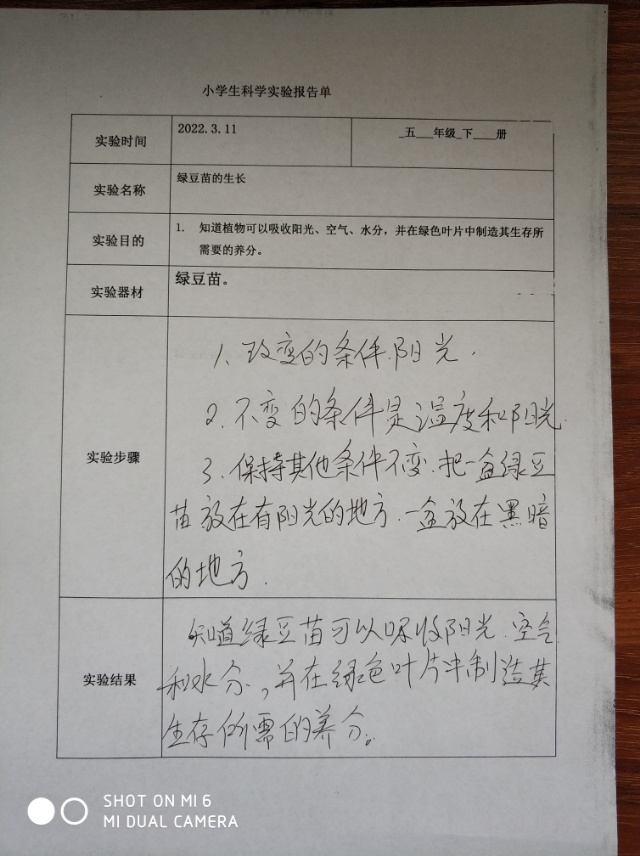 小学生科学实验报告单
实验时间 2022.3.11 _五___年级_下____册
实验名称 绿豆苗的生长
实验目的 1. 知道植物可以吸收阳光、空气、水分，并在绿色叶片中制造其生存所
需要的养分。
实验器材 绿豆苗。
实验步骤
1、改变的条件.阳光.
2、不变的条件是温度和阳光.
3、保持其他条件不变.把一盆绿豆
苗放在有阳光的地方.一盆放在黑暗
的地方.
实验结果
知道绿豆苗可以吸收阳光.空气
和水分，并在绿色叶片中制造其
生存所需的养分。
SHOT ON MI 6
MI DUAL CAMERA